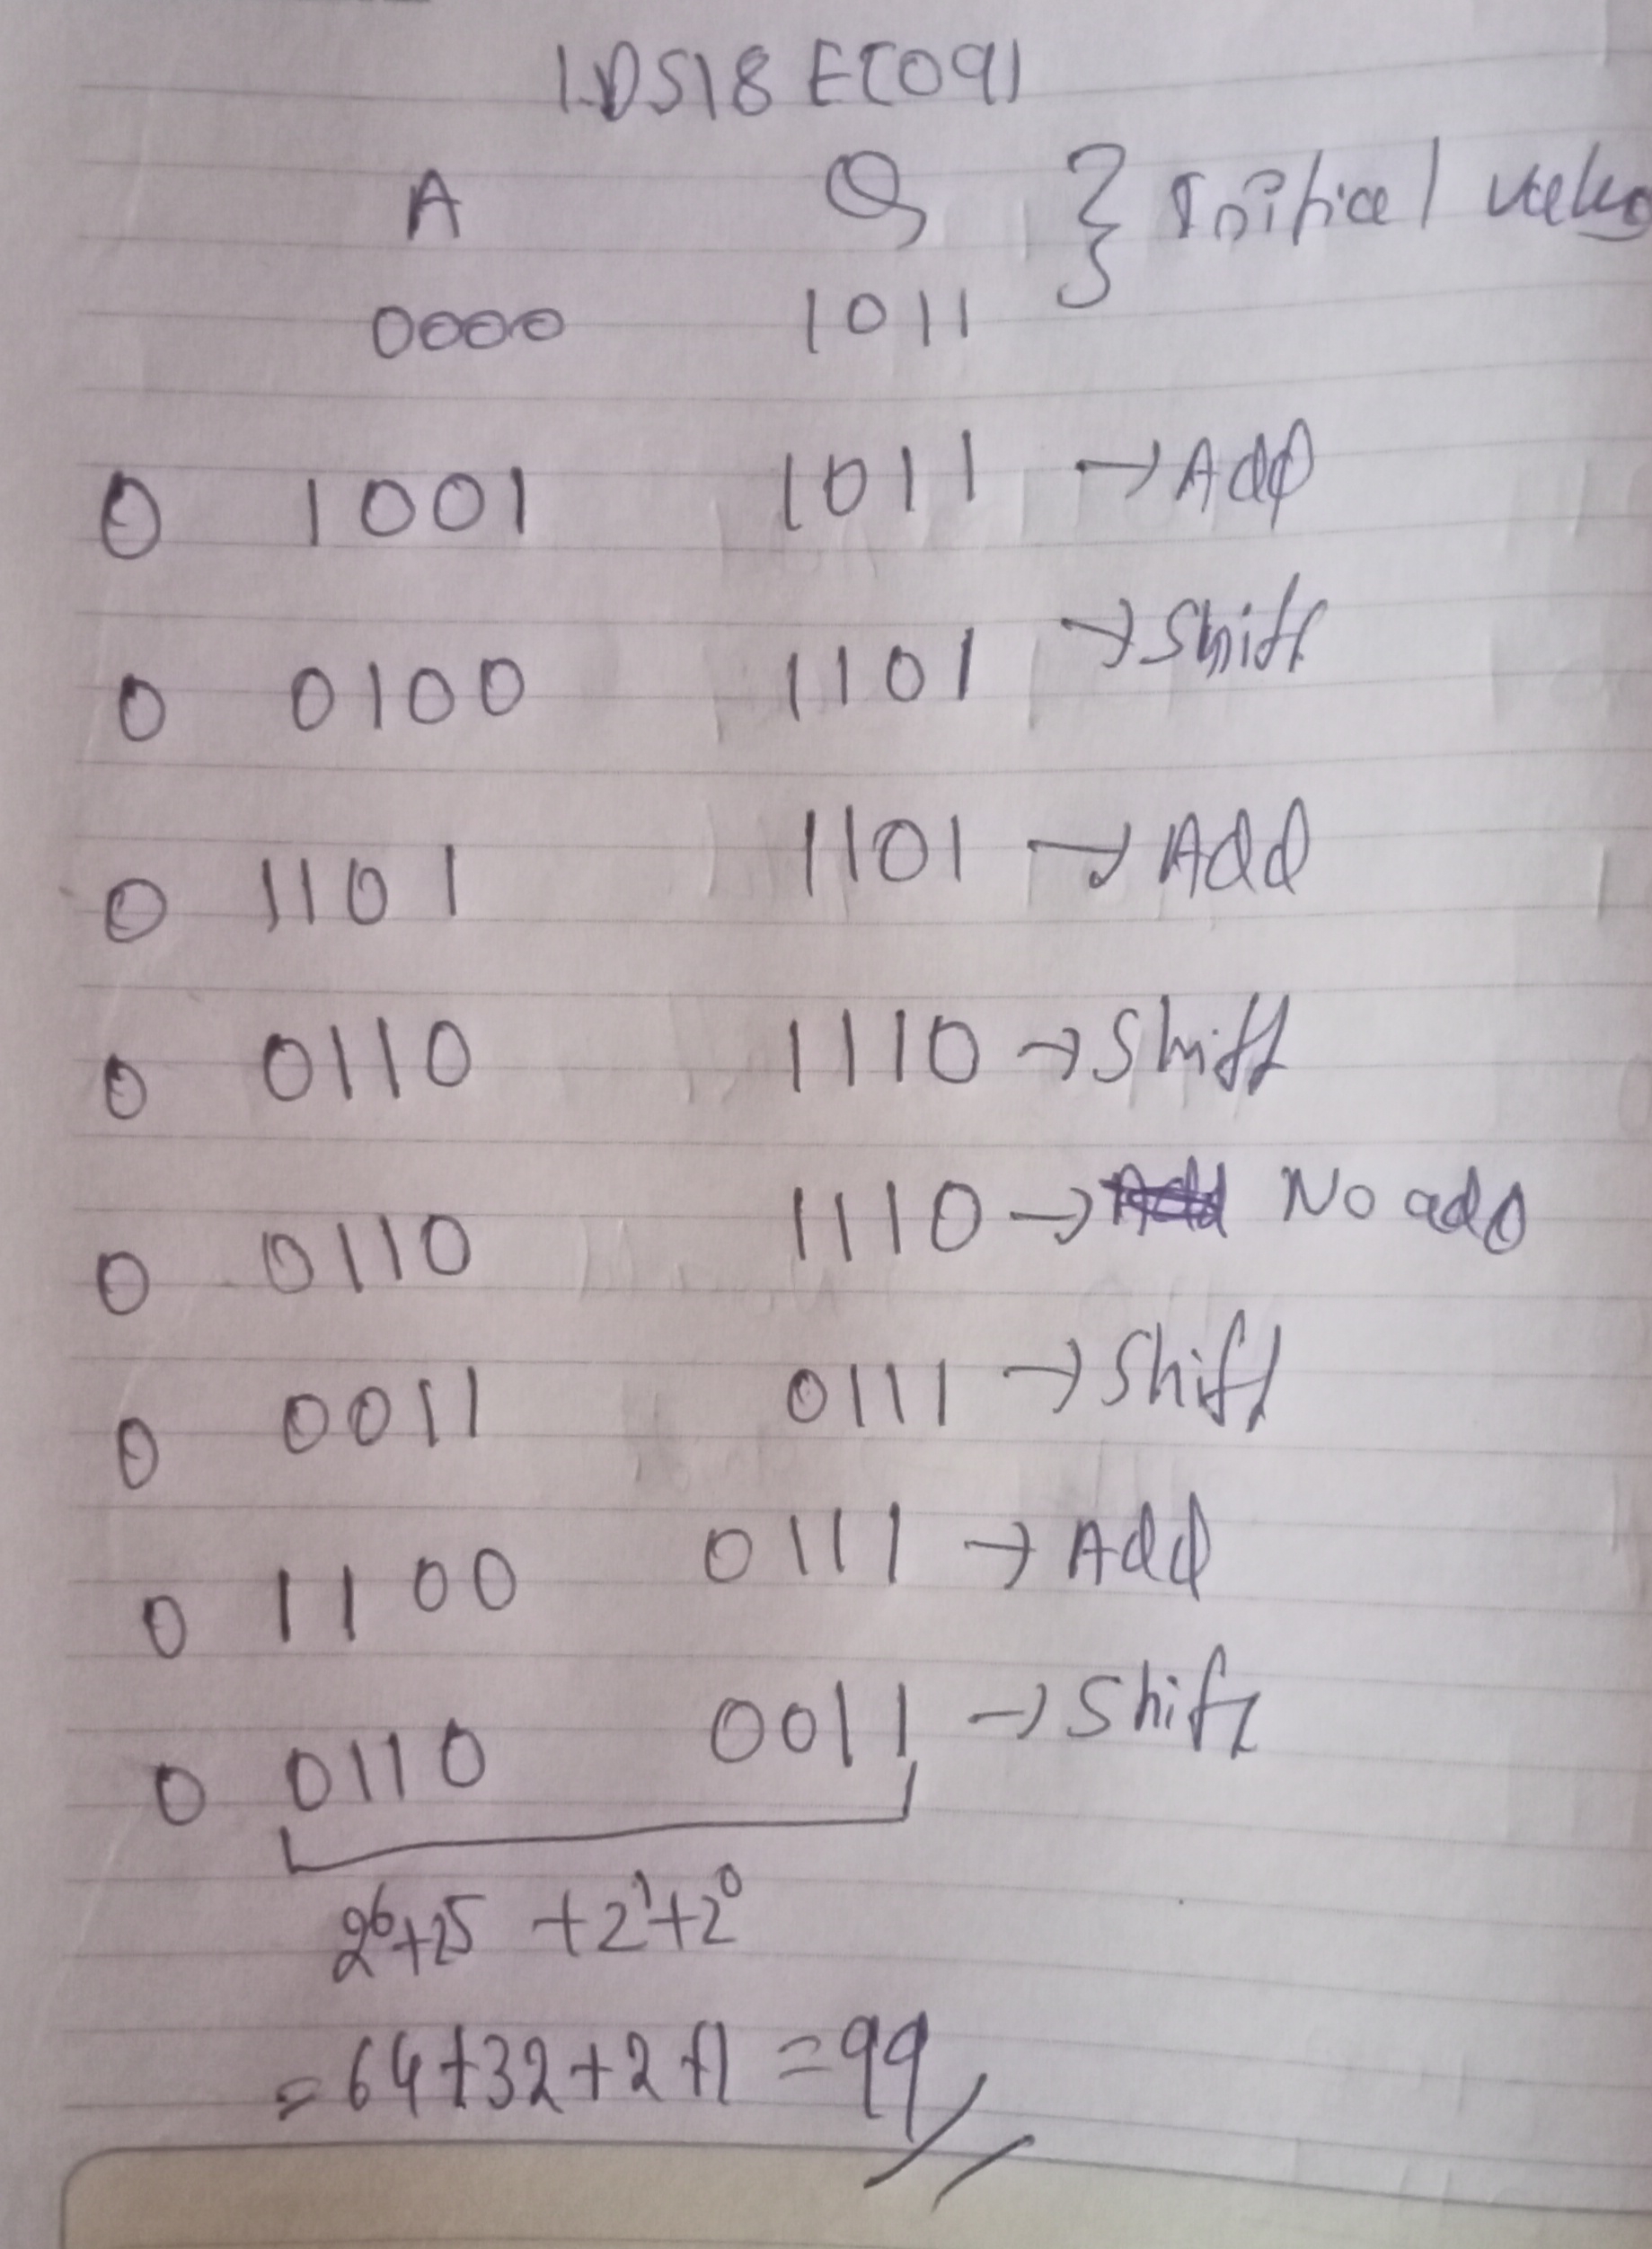 1DS18EC091
A Q } Initial value
0000 1011
0 1001 1011 → Add
0 0100 1101 → Shift
0 1101 1101 → Add
0 0110 1110 → Shift
0 0110 1110 → No add
0 0011 0111 → Shift
0 1100 0111 → Add
0 0110 0011 → Shift
2⁶+2⁵ +2¹+2⁰
= 64+32+2+1 = 99